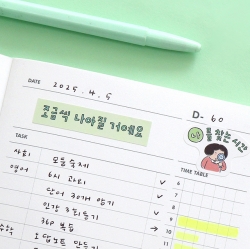 DATE 2025. 4. 5
D- 60
조금씩 나아질 거예요
를 찾는 시간
TASK
TIME TABLE
사회 오늘 숙제
영어 6시 과외 ✓ 6
단어 30개 암기 ✓ 7
인강 3회 듣기 ✓ 8
36p 복습 → 9
수학 오답노트 만들기 10
11